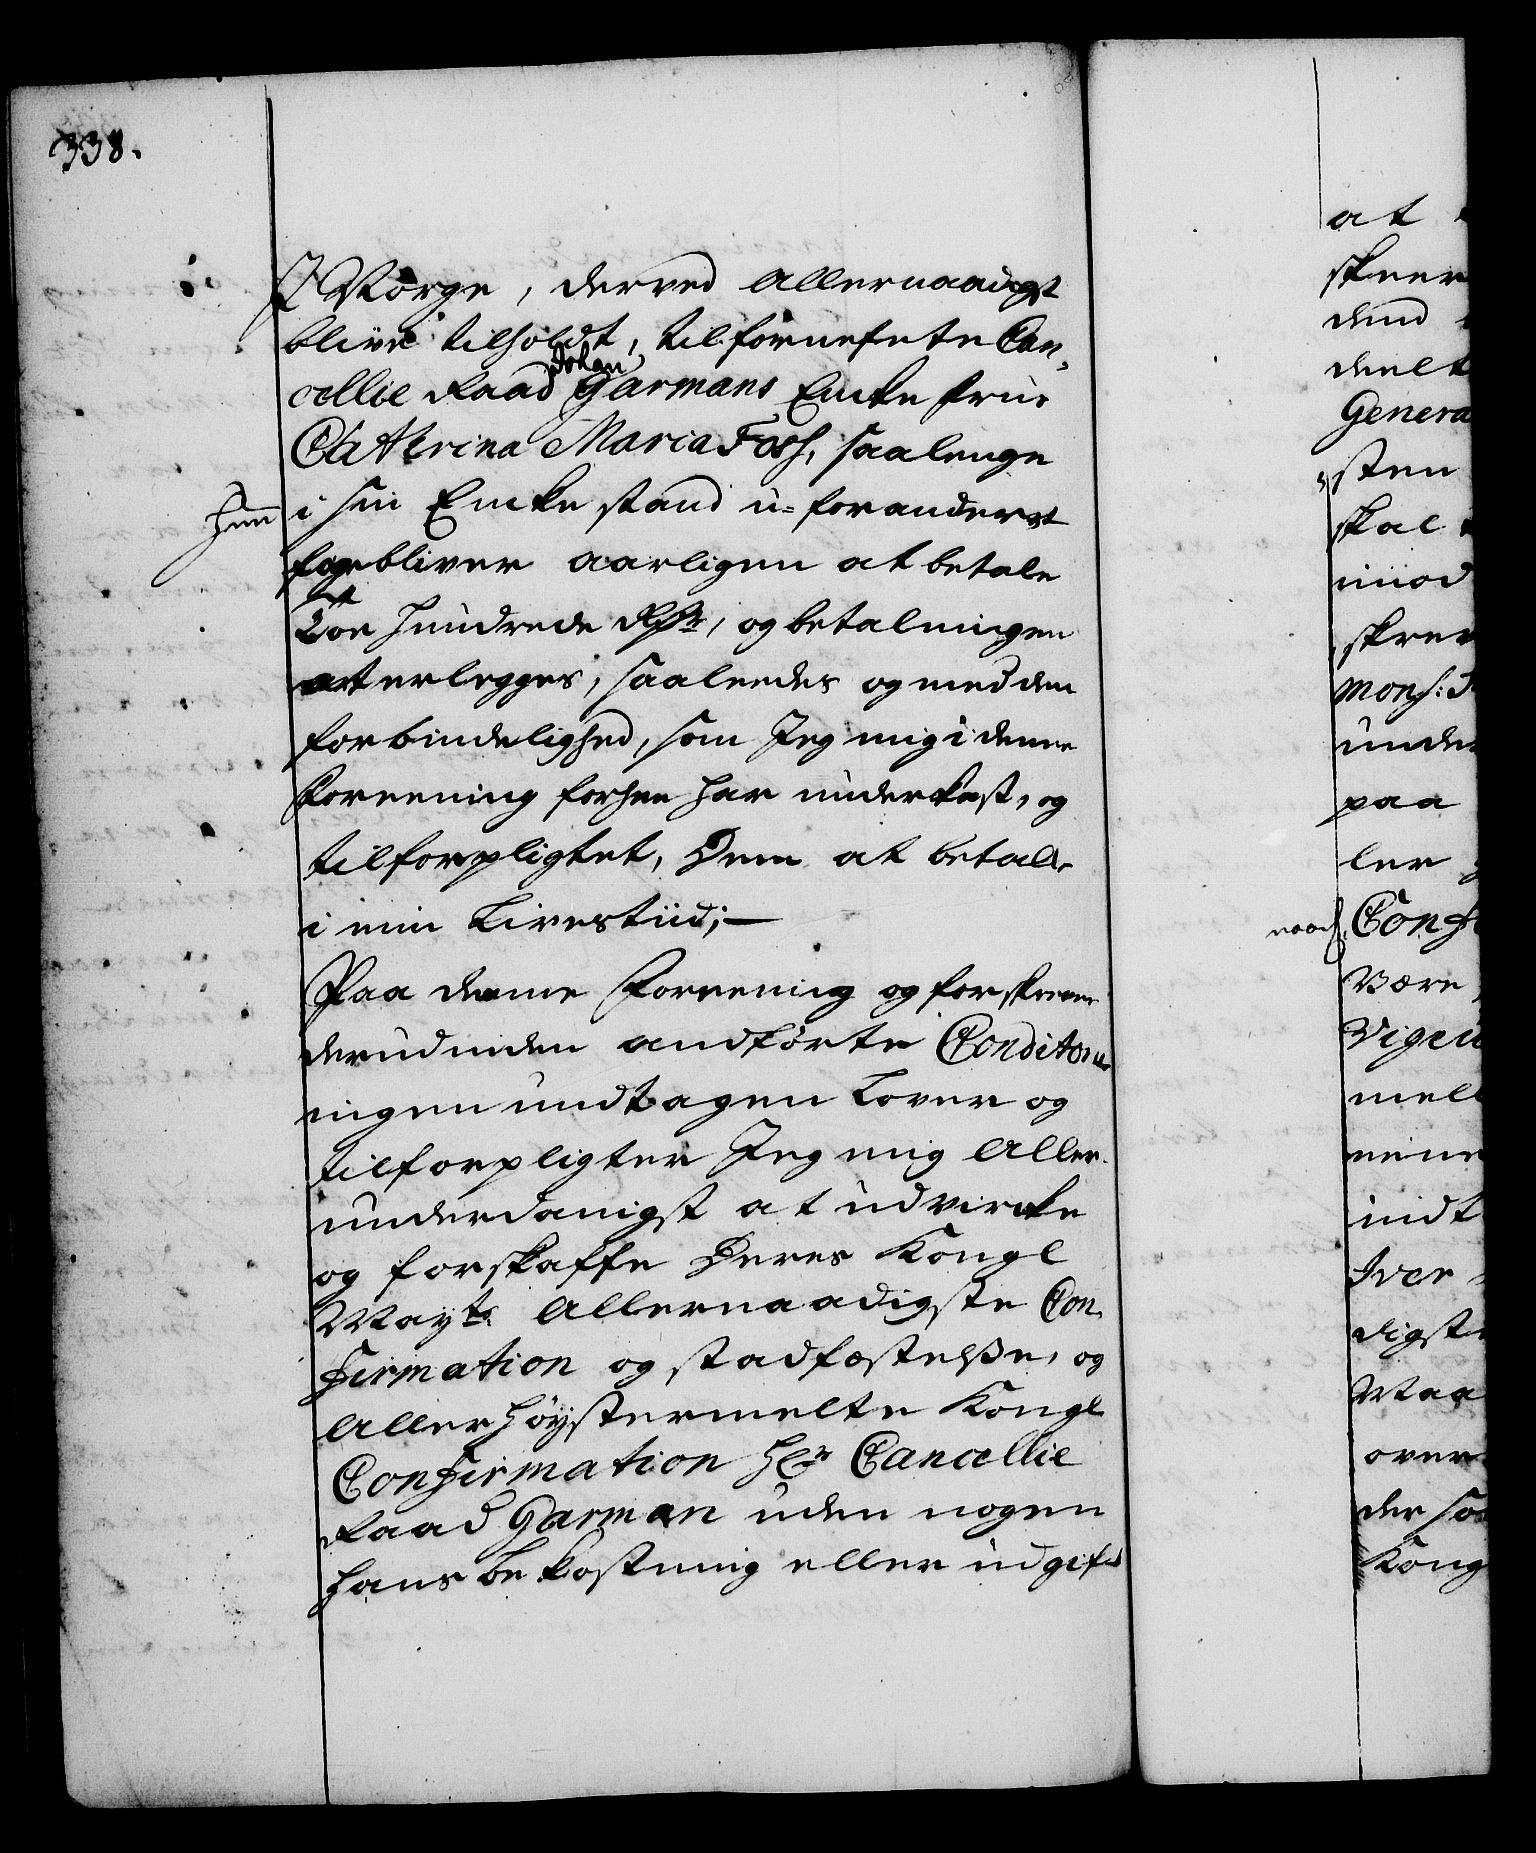 338.
J Norge, derved allernaadigst
blive tilholdt, tilfornefnte Can¬
cellie Raad Johan Garmans Encke frue
Catherina Maria Fosh, saalenge
hun i sin Encke stand u-forandert
forbliver aarligen at betale
Toe hundrede Rdr, og betalningen
at erlegges, saaleedes og med den
forbindelighed, som Jeg mig i denne
foreening forhen har underkast, og
tilforpligtet, Dem at betale
i min Livestiid;—
Paa denne foreening og forskrevne
derudinden andførte Conditioner
ingen undtagen Lover og
tilforpligter Jeg mig Aller¬
underdanigst at udvircke
og forskaffe Deres Kongl
Mayts Allernaadigste Con¬
firmation og stadfæstelße, og
Allerhøystermelte Kongl
Confirmation Hr Cancellie
Raad Garman uden nogen
hans bekostning eller udgift
at
skeer
dend
deelt
Genera
sten
skal
imod
skrev
Mons:
under
paa
ler
naad. Conf
Være
Vigeli
mell
mine
indt
Iver
digst
Maa
over
der so
Kong